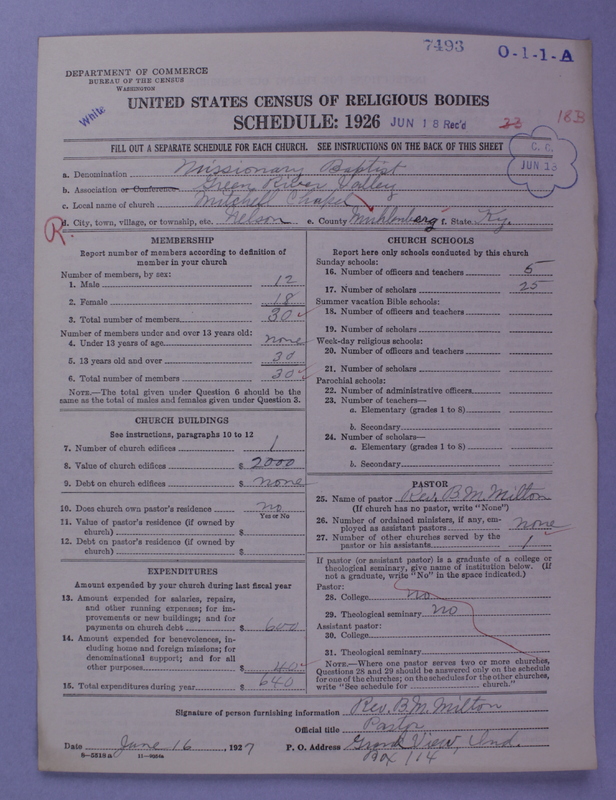 7493
O-1-1-A
DEPARTMENT OF COMMERCE
BUREAU OF THE CENSUS
WASHINGTON
White
UNITED STATES CENSUS OF RELIGIOUS BODIES
SCHEDULE: 1926 JUN 18 Rec'd
18B
FILL OUT A SEPARATE SCHEDULE FOR EACH CHURCH. SEE INSTRUCTIONS ON THE BACK OF THIS SHEET
C. C.
JUN 18
a. Denomination Missionary Baptist
b. Association or Conference Green River Valley
c. Local name of church Mitchell Chapel
R.
d. City, town, village, or township, etc. Nelson e. County Muhlenberg f. State Ky.
MEMBERSHIP
Report number of members according to definition of
member in your church
Number of members, by sex:
1. Male 12
2. Female 18
3. Total number of members 30
Number of members under and over 13 years old:
4. Under 13 years of age none
5. 13 years old and over 30
6. Total number of members 30
NOTE.—The total given under Question 6 should be
same as the total of males and females given under Question 3.
CHURCH BUILDINGS
See instructions, paragraphs 10 to 12
7. Number of church edifices 1
8. Value of church edifices $ 2000
9. Debt on church edifices $ none
10. Does church own pastor's residence no
Yes or No
11. Value of pastor's residence (if owned by
church) $
12. Debt on pastor's residence (if owned by
church) $
EXPENDITURES
Amount expended by your church during last fiscal year
13. Amount expended for salaries, repairs,
and other running expenses; for im-
provements or new buildings; and for
payments on church debt $ 600
14. Amount expended for benevolences, in-
cluding home and foreign missions; for
denominational support; and for all
other purposes $ 40
15. Total expenditures during year $ 640
CHURCH SCHOOLS
Report here only schools conducted by this church
Sunday schools:
16. Number of officers and teachers 5
17. Number of scholars 25
Summer vacation Bible schools:
18. Number of officers and teachers
19. Number of scholars
Week-day religious schools:
20. Number of officers and teachers
21. Number of scholars
Parochial schools:
22. Number of administrative officers
23. Number of teachers—
a. Elementary (grades 1 to 8)
b. Secondary
24. Number of scholars—
a. Elementary (grades 1 to 8)
b. Secondary
PASTOR
25. Name of pastor Rev. B. M. Milton
(If church has no pastor, write "None")
26. Number of ordained ministers, if any, em-
ployed as assistant pastors none
27. Number of other churches served by the
pastor or his assistants 1
If pastor (or assistant pastor) is a graduate of a college or
theological seminary, give name of institution below. (If
not a graduate, write "No" in the space indicated.)
Pastor:
28. College no
29. Theological seminary no
Assistant pastor:
30. College
31. Theological seminary
NOTE.—Where one pastor serves two or more churches,
Questions 28 and 29 should be answered only on the schedule
for one of the churches; on the schedules for the other churches,
write "See schedule for church."
Signature of person furnishing information Rev. B. M. Milton
Official title Pastor
Date June 16, 1927 P. O. Address Grand View, Ind.
Box 114
8-5318a